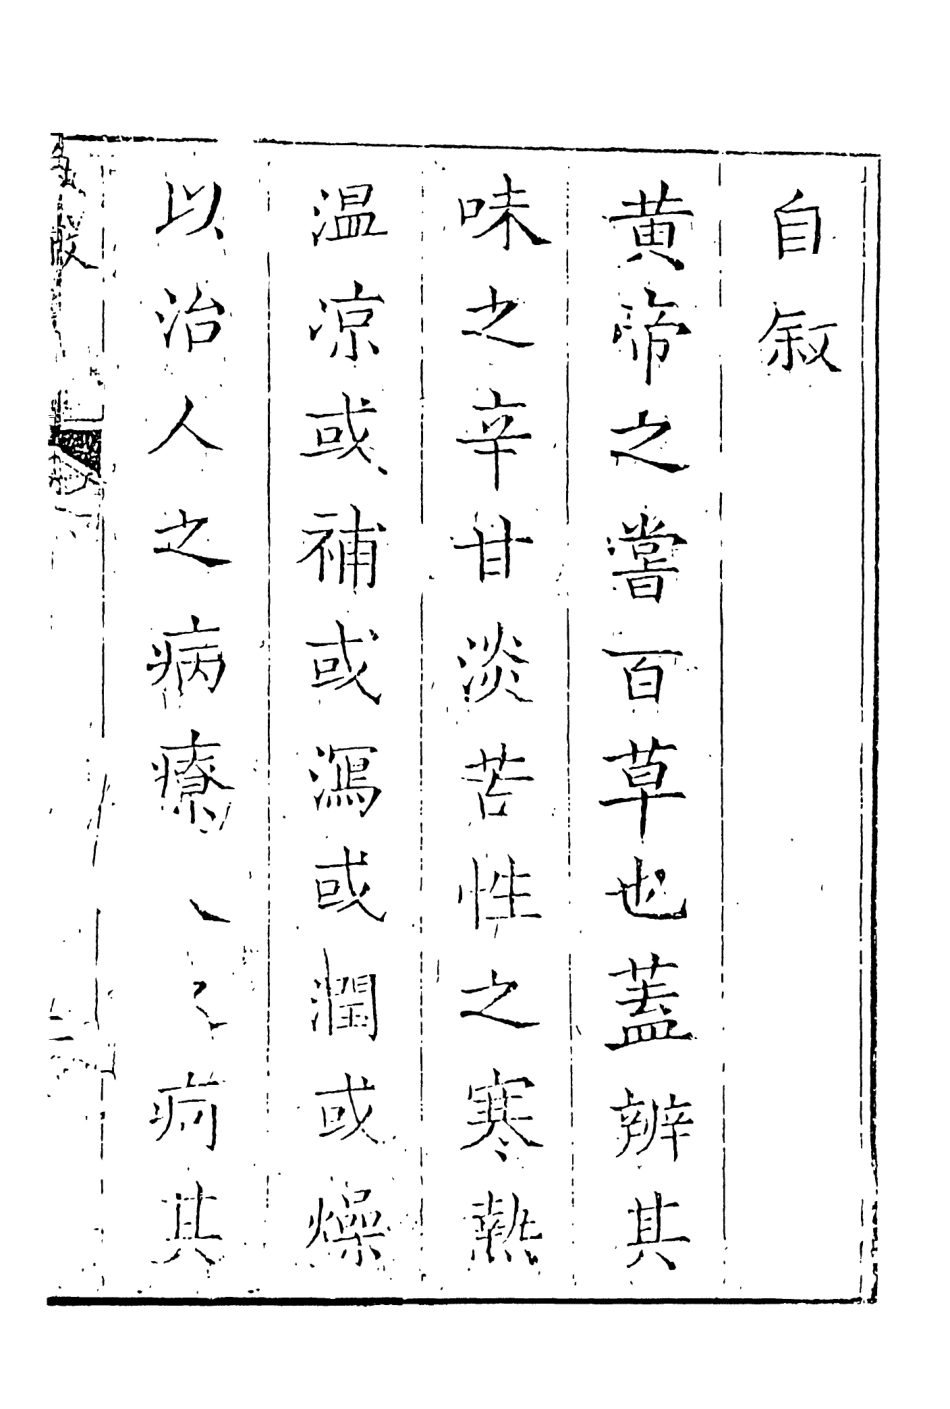 自叙
黄帝之嘗百草也蓋辨其
味之辛甘淡苦性之寒熱
温凉或補或瀉或潤或燥
以治人之病療人之病其